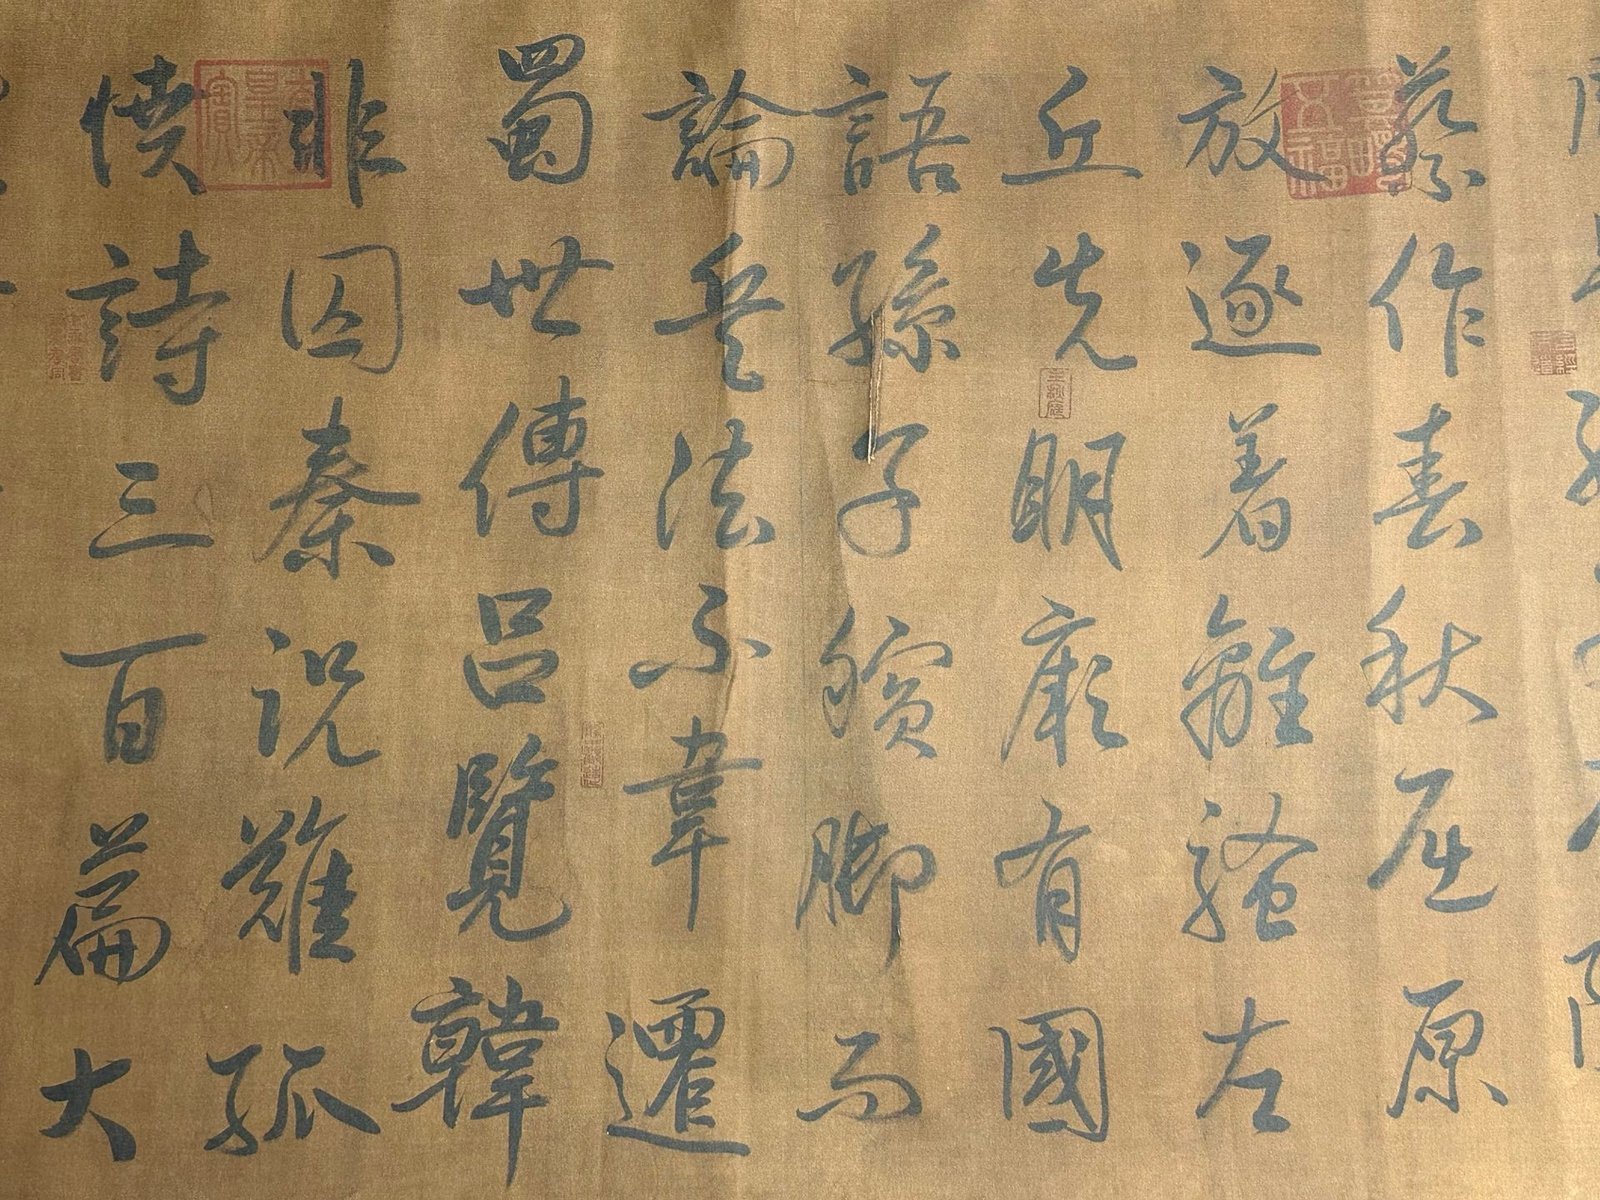 蔡作春秋屈原
放逐着離騷左
丘失明厥有國
語孫子臏脚而
論兵法不韋遷
蜀世傳吕覽韓
非囚秦説難孤
憤詩三百篇大